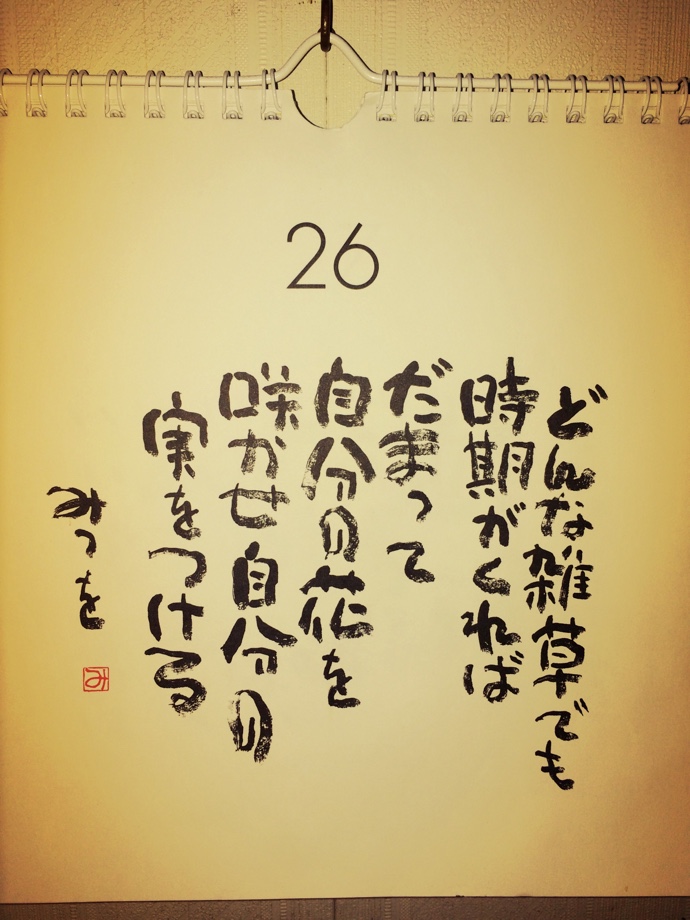 26
どんな雑草でも
時期がくれば
だまって
自分の花を
咲かせ自分の
実をつける
みつを
み